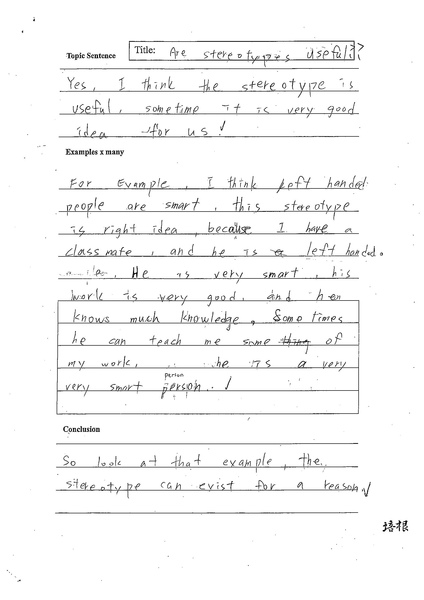 Topic Sentence
Title: Are stereotypes useful??
Yes, I think the stereotype is
useful, sometime it is very good
idea for us!
Examples x many
For Example, I think left handed
people are smart, this stereotype
is right idea, because I have a
classmate, and he is left handed.
He is very smart, his
work is very good, and hen
knows much knowledge, Some times
he can teach me some thing of
my work, he is a very
person
very smart person.
Conclusion
So look at that example, the
stereotype can exist for a reason
培根